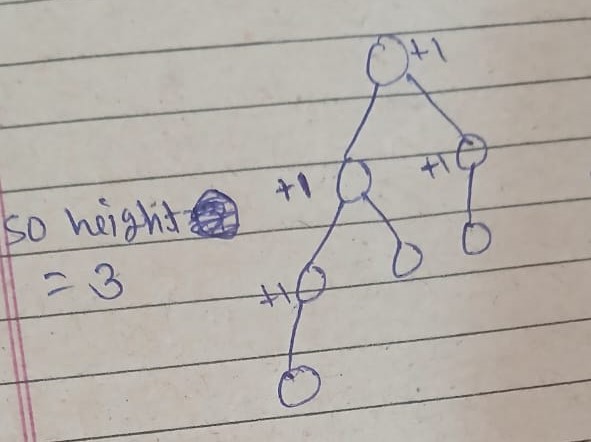 +1
+1
+1
so height
= 3
+1